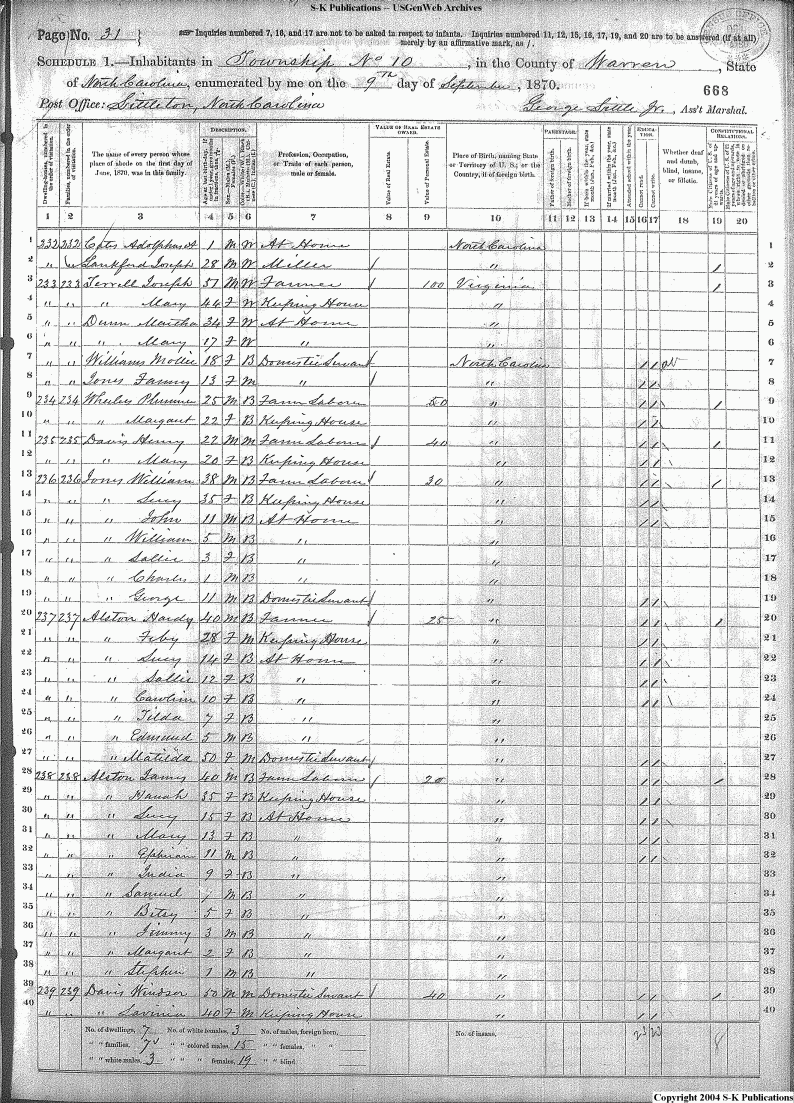 S-K Publications -- USGenWeb Archives
Page No. 31
Inquiries numbered 7, 16, and 17 are not to be asked in respect to infants. Inquiries numbered 11, 12, 15, 16, 17, 19, and 20 are to be answered (if at all)
merely by an affirmative mark, as /.
SCHEDULE 1.—Inhabitants in Township No 10, in the County of Warren, State
of North Carolina, enumerated by me on the 9th day of September, 1870.
668
Post Office: Littleton, North Carolina
George Little Jr., Ass't Marshal.
DESCRIPTION. VALUE OF REAL ESTATE OWNED. PARENTAGE. EDUCATION. CONSTITUTIONAL RELATIONS.
Dwelling-houses, numbered in the order of visitation.
Families, numbered in the order of visitation.
The name of every person whose place of abode on the first day of June, 1870, was in this family.
Profession, Occupation, or Trade of each person, male or female.
Value of Real Estate.
Value of Personal Estate.
Place of Birth, naming State or Territory of U. S.; or the Country, if of foreign birth.
Father of foreign birth.
Mother of foreign birth.
Attended school within the year.
Cannot read.
Cannot write.
Whether deaf and dumb, blind, insane, or idiotic.
1 2 3 4 5 6 7 8 9 10 11 12 13 14 15 16 17 18 19 20
1 232 232 Adolphus 1 M W At Home North Carolina 1
2 " Lankford Joseph 28 M W Miller / " / 2
3 233 233 Terrell Joseph 51 M W Farmer / 100 Virginia / 3
4 " " " Mary 44 F W Keeping House " 4
5 " " Dunn Martha 34 F W At Home " 5
6 " " " Mary 17 F W " " 6
7 " " Williams Mollie 18 F B Domestic Servant / North Carolina / / 7
8 " " Jones Fanny 13 F M " / " / / 8
9 234 234 Wheeler Plummer 25 M B Farm Laborer 50 " / / / 9
10 " " " Margaret 22 F B Keeping House " / / 10
11 235 235 Davis Henry 22 M M Farm Laborer / 40 " / / / 11
12 " " " Mary 20 F B Keeping House " / / 12
13 236 236 Jones William 38 M B Farm Laborer / 30 " / / / 13
14 " " " Lucy 35 F B Keeping House " / / 14
15 " " " John 11 M B At Home " / / 15
16 " " " William 5 M B " " 16
17 " " " Sallie 3 F B " " 17
18 " " " Charles 1 M B " " 18
19 " " " George 11 M B Domestic Servant / " / / 19
20 237 237 Alston Hardy 40 M B Farmer / 25 " / / / 20
21 " " " Feby 28 F M Keeping House " / / 21
22 " " " Lucy 14 F B At Home " / / 22
23 " " " Sallie 12 F B " " / / 23
24 " " " Caroline 10 F B " " / / 24
25 " " " Tilda 7 F B " " 25
26 " " " Edmund 5 M B " " 26
27 " " " Matilda 50 F M Domestic Servant / " / / 27
28 238 238 Alston James 40 M B Farm Laborer / 20 " / / / 28
29 " " " Hanah 35 F B Keeping House " / / 29
30 " " " Lucy 15 F B At Home " / / 30
31 " " " Mary 13 F B " " / / 31
32 " " " Ephriam 11 M B " " / / 32
33 " " " India 9 F B " " 33
34 " " " Samuel 7 M B " " 34
35 " " " Betsy 5 F B " " 35
36 " " " Jimmy 3 M B " " 36
37 " " " Margaret 2 F B " " 37
38 " " " Stephen 1 M B " " 38
39 239 239 Davis Windsor 50 M M Domestic Servant / 40 " / / / 39
40 " " " Lavinia 40 F M Keeping House " / / 40
No. of dwellings, 7 No. of white females, 3 No. of males, foreign born, No. of insane, 23 23 8
" " families, 7 " " colored males, 15 " " females, " "
" " white males, 3 " " " females, 19 " " blind,
Copyright 2004 S-K Publications